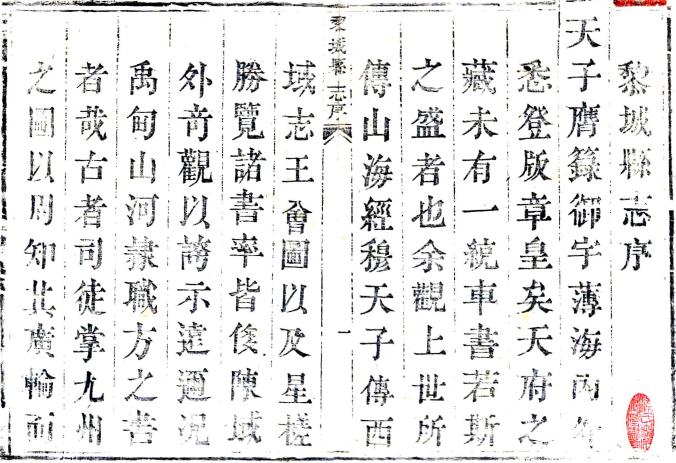 黎城縣志序
天子膺籙御宇薄海內外
悉登版章皇矣天府之
藏未有一統車書若斯
之盛者也余觀上世所
傳山海經穆天子傳西
黎城縣志序
一
域志王會圖以及星槎
勝覽諸書率皆侈陳域
外奇觀以誇示遠邇況
禹甸山河隸職方之書
者哉古者司徒掌九州
之圖以周知其廣輪而